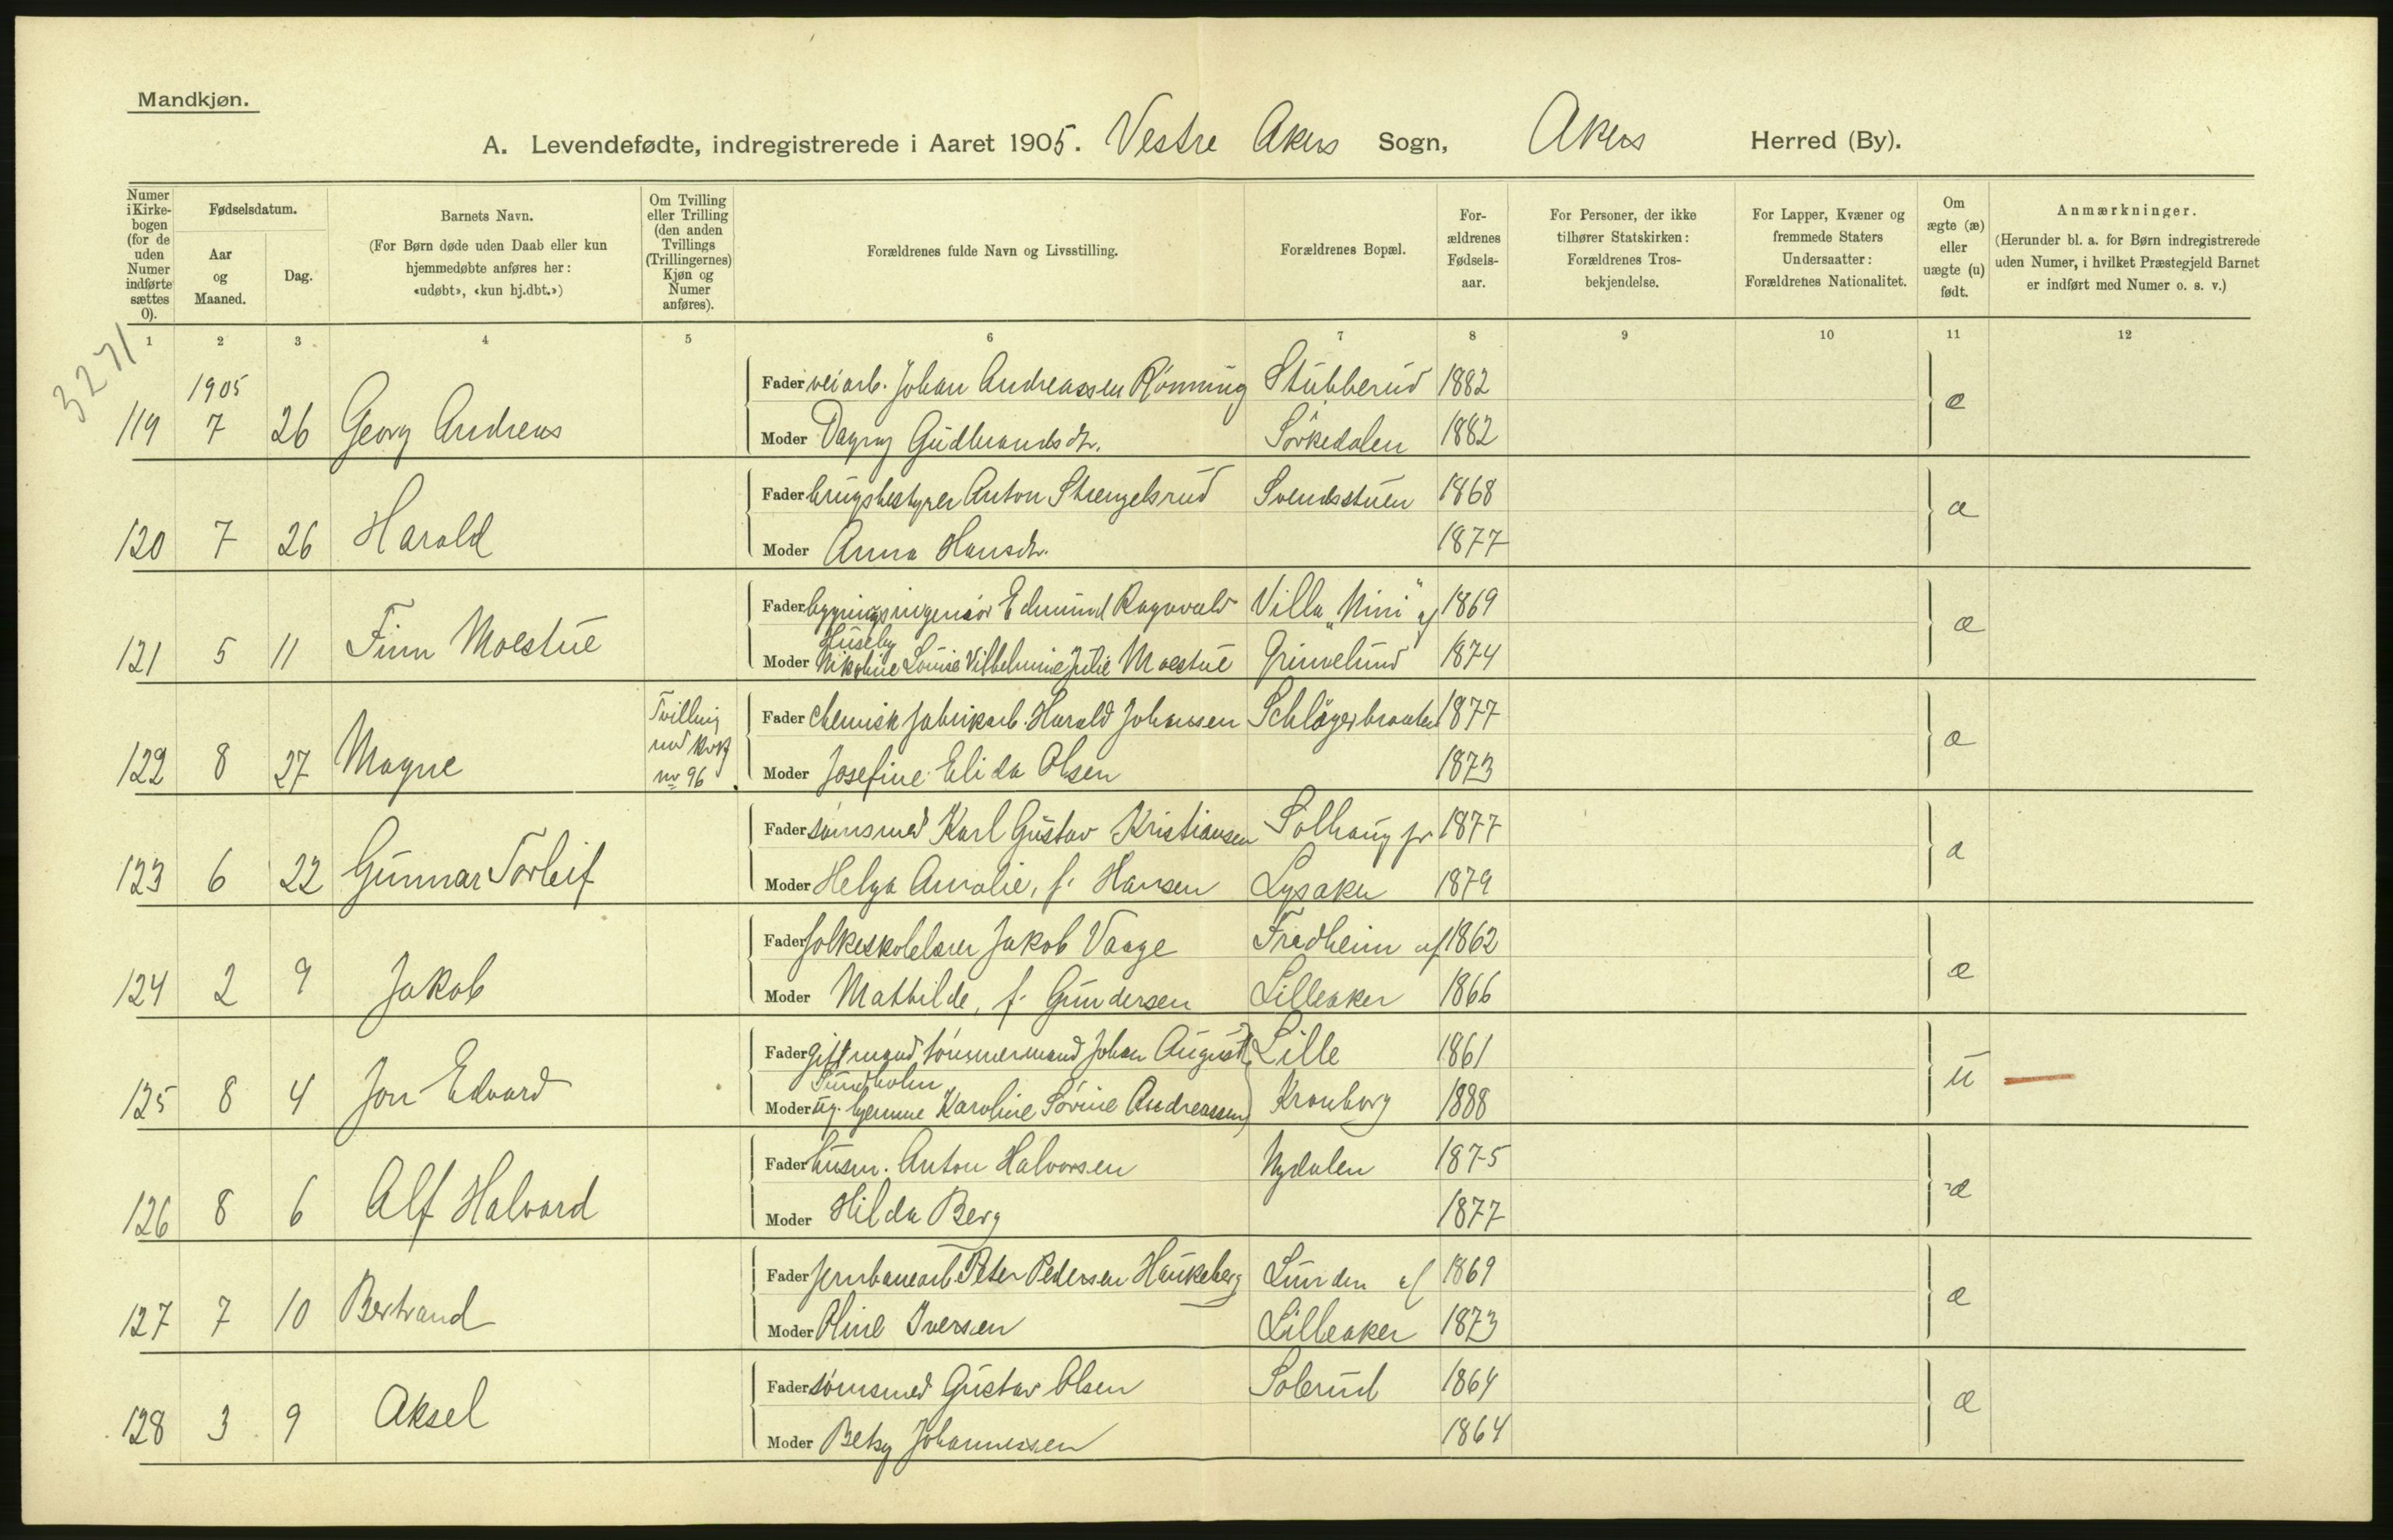 Mandkjøn.
A. Levendefødte, indregistrerede i Aaret 1905. Vestre Akers Sogn, Akers Herred (By).
Numer i Kirkebogen (for de uden Numer indførte sættes 0).
Fødselsdatum.
Aar og Maaned.
Dag.
Barnets Navn.
(For Børn døde uden Daab eller kun hjemmedøbte anføres her: «udøbt», «kun hj.dbt.»)
Om Tvilling eller Trilling (den anden Tvillings (Trillingernes) Kjøn og Numer anføres).
Forældrenes fulde Navn og Livsstilling.
Forældrenes Bopæl.
Forældrenes Fødselsaar.
For Personer, der ikke tilhører Statskirken: Forældrenes Trosbekjendelse.
For Lapper, Kvæner og fremmede Staters Undersaatter: Forældrenes Nationalitet.
Om ægte (æ) eller uægte (u) født.
Anmærkninger.
(Herunder bl. a. for Børn indregistrerede uden Numer, i hvilket Præstegjeld Barnet er indført med Numer o. s. v.)
1 2 3 4 5 6 7 8 9 10 11 12
3271
1905
Fader veiarb. Johan Andreassen Rønning Stubberud 1882
119 7 26 Georg Andreas æ
Moder Dagny Gudbrandsdtr. Sørkedalen 1882
Fader brugsbestyrer Anton Strengelsrud Svendsstuen 1868
120 7 26 Harald æ
Moder Anna Hansdtr. 1877
Fader bygningsingeniør Edmund Ragnvald Villa "Mini" af 1869
Huseby
121 5 11 Finn Moestue æ
Moder Nikoline Louise Vilhelmine Julie Moestue Grimelund 1874
Fader chemisk fabrikarb. Harald Johansen Schlägerbraaten 1877
122 8 27 Magne Tvilling med kvk nr 96 æ
Moder Josefine Elida Olsen 1873
Fader sømsmed Karl Gustav Kristiansen Solhaug pr 1877
123 6 22 Gunnar Torleif æ
Moder Helga Amalie, f. Hansen Lysaker 1879
Fader folkeskolelærer Jakob Vaage Fredheim af 1862
124 2 9 Jakob æ
Moder Mathilde, f. Gundersen Lilleaker 1866
Fader gift mand, tømmermand Johan August Lille 1861
Sundholm
125 8 4 Jon Edvard u
Moder ug. hjemme Karoline Sørine Andreassen Kronborg 1888
Fader husm. Anton Halvorsen Nydalen 1875
126 8 6 Alf Halvard æ
Moder Hilda Berg 1877
Fader jernbanearb. Peter Pedersen Haukeberg Lunden af 1869
127 7 10 Bertrand æ
Moder Oline Iversen Lilleaker 1873
Fader sømsmed Gustav Olsen Solerud 1864
128 3 9 Aksel æ
Moder Betsy Johannessen 1864